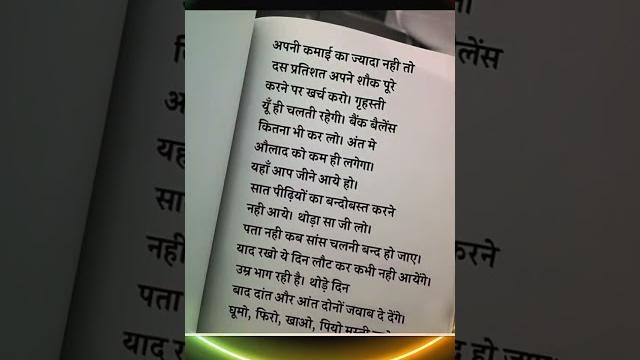 अपनी कमाई का ज्यादा नही तो
दस प्रतिशत अपने शौक पूरे
करने पर खर्च करो। गृहस्ती
यूँ ही चलती रहेगी। बैंक बैलेंस
कितना भी कर लो। अंत मे
औलाद को कम ही लगेगा।
यहाँ आप जीने आये हो।
सात पीढ़ियों का बन्दोबस्त करने
नही आये। थोड़ा सा जी लो।
पता नही कब सांस चलनी बन्द हो जाए।
याद रखो ये दिन लौट कर कभी नही आयेंगे।
उम्र भाग रही है। थोड़े दिन
बाद दांत और आंत दोनों जवाब दे देंगे।
घूमो, फिरो, खाओ, पियो